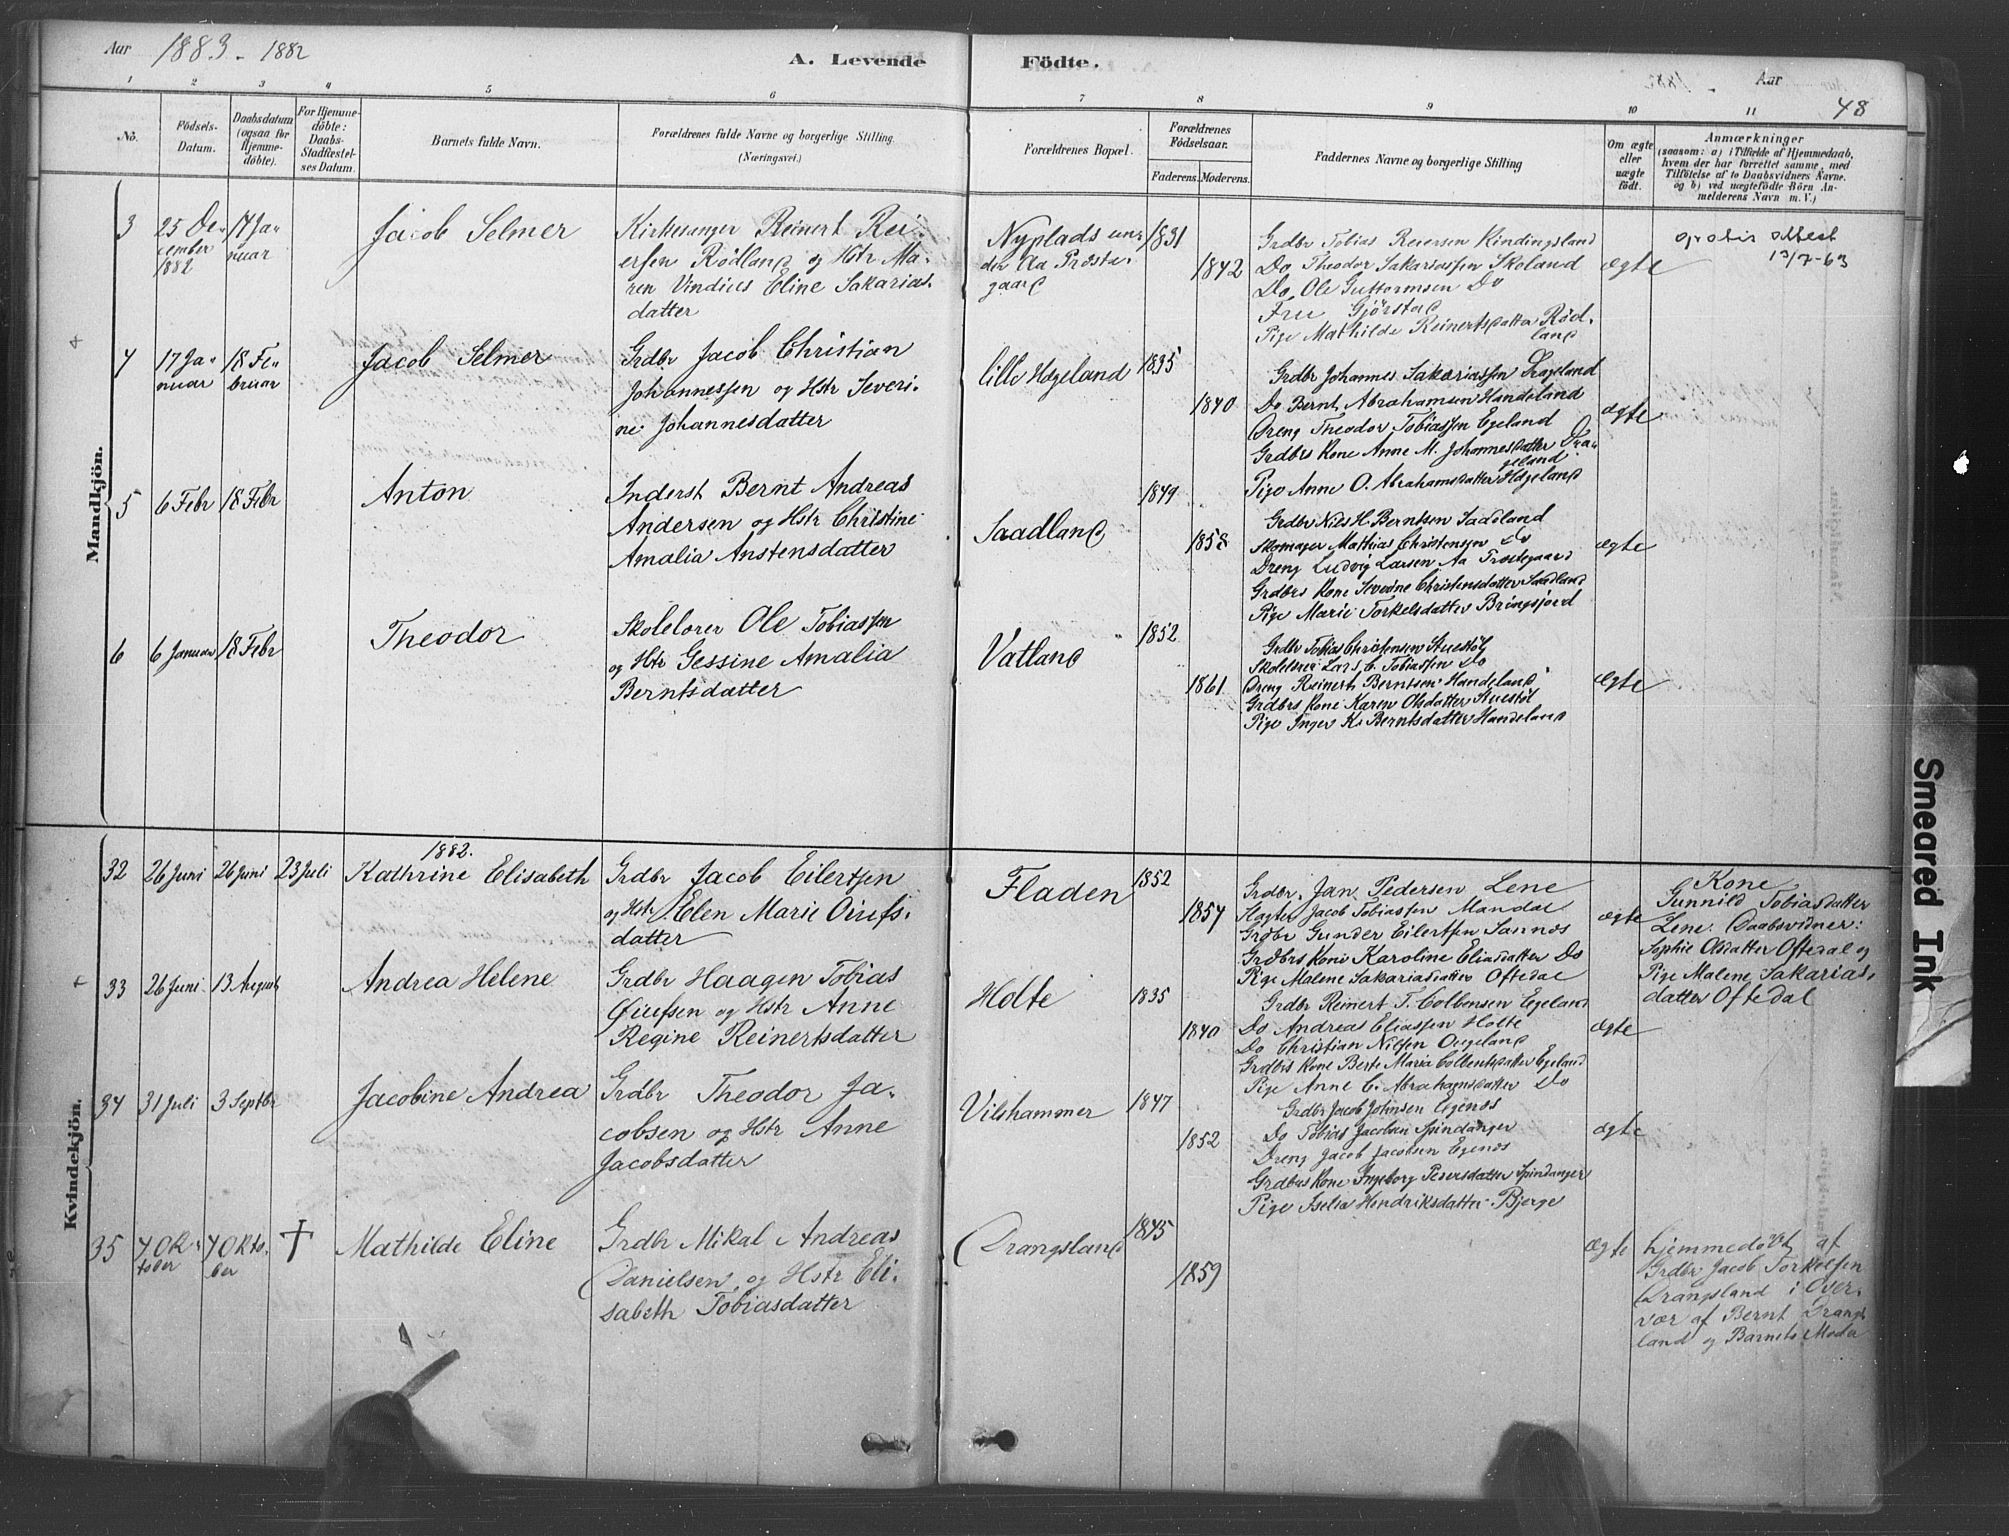 Aar 1883 - 1882
A. Levende Födte.
Aar
48
1 2 3 4 5 6 7 8 9 10 11
No.
Födsels-
Datum.
Daabsdatum
(ogsaa for
Hjemme-
döbte).
For Hjemme-
döbte:
Daabs-
Stadfæstel-
ses Datum.
Barnets fulde Navn.
Forældrenes fulde Navne og borgerlige Stilling.
(Næringsvei.)
Forældrenes Bopæl.
Forældrenes
Födselsaar.
Faderens. Moderens.
Faddernes Navne og borgerlige Stilling
Om ægte
eller
uægte
födt.
Anmærkninger
(saasom: a) i Tilfælde af Hjemmedaab,
hvem der har forrettet samme, med
Tilföielse af to Daabsvidners Navne.
og b) ved uægtefödte Börn An-
melderens Navn m. V.)
Mandkjön.
3
25 De-
cember
1882
14 Ja-
nuar
Jacob Selmer
Kirkesanger Reinert Rei-
ersen Rödland og Hstr Ma-
ren Vindics Eline Sakarias-
datter
Nyplads un-
der Aa Præste-
gaard
1831
1842
Grdbr Tobias Reiersen Kindingsland
Do Theodor Sakariassen Skoland
Do Ole Guttormsen Do
Fru Gjörstad
Pige Mathilde Reinertsdatter Röd-
land
ægte
gratis attest
13/7-63
4
17 Ja-
nuar
18 Fe-
bruar
Jacob Selmer
Grdbr Jacob Christian
Johannessen og Hstr Severi-
ne Johannesdatter
lille Høgeland
1835
1840
Grdbr Johannes Sakariassen Drageland
Do Bernt Abrahamsen Handeland
Dreng Theodor Tobiassen Egeland
Grdbrs Kone Anne M. Johannesdatter Dra-
geland
Pige Anne O. Abrahamsdatter Høgeland
ægte
5
6 Febr
18 Febr
Anton
Inderst Bernt Andreas
Andersen og Hstr Christine
Amalia Anstensdatter
Saadland
1849
1858
Grdbr Nils H. Berntsen Saadland
Skomager Mathias Christensen Do
Dreng Ludvig Larsen Aa Præstegaard
Grdbrs Kone Severine Christensdatter Saadland
Pige Marie Torkelsdatter Bringsjord
ægte
6
6 Januar
18 Febr
Theodor
Skolelærer Ole Tobiassen
og Hstr Gessine Amalia
Berntsdatter
Vatland
1852
1861
Grdbr Tobias Christensen Stuestöl
Skolelærer Lars C. Tobiassen Do
Dreng Reinert Berntsen Handeland
Grdbrs Kone Karen Olsdatter Stuestöl
Pige Inger K. Berntsdatter Handeland
ægte
Kvindekjön.
1882.
32
26 Juni
26 Juni
23 Juli
Kathrine Elisabeth
Grdbr Jacob Eilertsen
og Hstr Elen Marie Oiufs-
datter
Fladen
1852
1857
Grdbr. Jan Pedersen Lene
Slagter Jacob Tobiassen Mandal
Grdbr Gunder Eilertsen Sannes
Grdbrs Kone Karoline Eliasdatter Do
Pige Malene Sakariasdatter Oftedal
ægte
Kone
Gunnild Tobiasdatter
Lene. Daabsvidner:
Sophie Olsdatter Oftedal og
Pige Malene Sakarias-
datter Oftedal
33
26 Juni
13 August
Andrea Helene
Grdbr Haagen Tobias
Øiufsen og Hstr Anne
Regine Reinertsdatter
Holte
1835
1840
Grdbr Reinert T. Colbensen Egeland
Do Andreas Eliassen Holte
Do Christian Nilsen Omland
Grdbrs Kone Berte Maria Colbentsdatter Egeland
Pige Anne C. Abrahamsdatter Do
ægte
34
31 Juli
3 Septbr
Jacobine Andrea
Grdbr Theodor Ja-
cobsen og Hstr Anne
Jacobsdatter
Vilshammer
1847
1852
Grdbr Jacob Johnsen Egenæs
Do Tobias Jacobsen Spindanger
Dreng Jacob Jacobsen Egenæs
Grdbrs Kone Ingeborg Pedersdatter Spindanger
Pige Iselia Hendriksdatter Bjerge
ægte
35
7 Ok-
tober
7 Okto-
ber
†
Mathilde Eline
Grdbr Mikal Andreas
Danielsen og Hstr Eli-
sabeth Tobiasdatter
Drangsland
1845
1859
ægte
hjemmedøbt af
Grdbr Jacob Torkelsen
Drangsland i Over-
vær af Bernt Drangs-
land og Barnets Moder
Smeared Ink